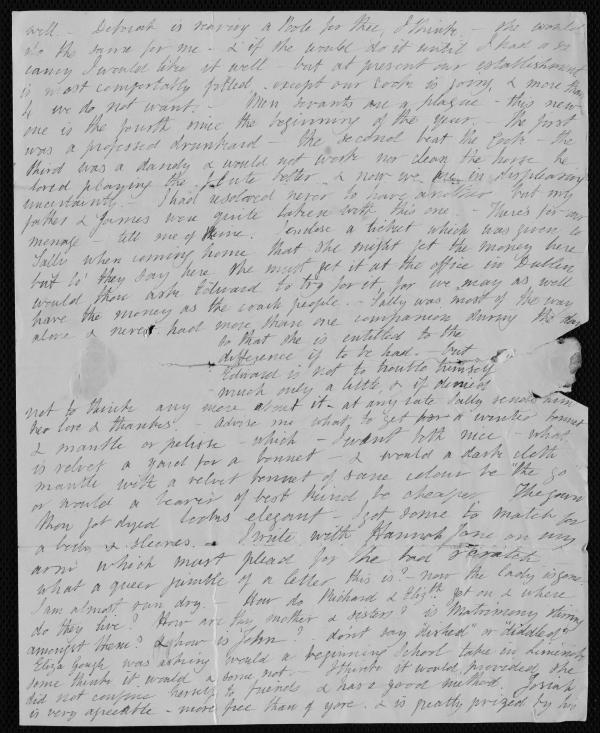 well. - Deborah is rearing a Poole for thee, I think. - She would
do the same for me - & if she would do it until I had a va
cancy I would like it well - but at present our establishment
is most comfortably filled, except our Cook is going, & more than
4 we do not want. - Men servants are a plague - this new
one is the fourth since the beginning of the year. - the first
was a professed drunkard - the second beat the Cook - the
third was a dandy & would not work nor clean the horse he
loved playing the flute better & now we are in displeasing
uncertainty. - I had resolved never to have another but my
father & James were quite taken with this one. - There's for our
menage - tell me of thine. I enclose a ticket which was given to
Sally when coming home that she might get the money here
but lo' they say here she must get it at the office in Dublin
would thou ask Edward to try for it for we may as well
have the money as the coach people. - Sally was most of the way
alone & never had more than one companion during the day
so that she is entitled to the
difference if to be had. but
Edward is not to trouble himself
much only a little & if denied
not to think any more about it - at any rate Sally sends him
her love & thanks - Advise me what to get for a winter bonnet
& mantle or pelisse - which - I want both nice - what
is velvet a yard for a bonnet - & would a dark cloth
mantle with a velvet bonnet of same colour be "the go
or would a beaver of best kind be cheaper The gown
thou got dyed looks elegant - I got some to match for
a body & sleeves. - I write with Hannah Jane on my
arm which must plead for the bad scratch
what a queer jumble of a letter this is? - now the lady is gone
I am almost run dry. How do Richard & Elizth get on & where
do they live? How are thy mother & sisters? is Matrimony stirring
amongst them? & how is John? don't say "dished" or "diddled"
Eliza Gough was asking would a beginning School take in Limerick
some think it would & some not. - I think it would provided she
did not confine herself to friends & has a good method. Josiah
is very agreeable - more free than of yore & is greatly prized by his